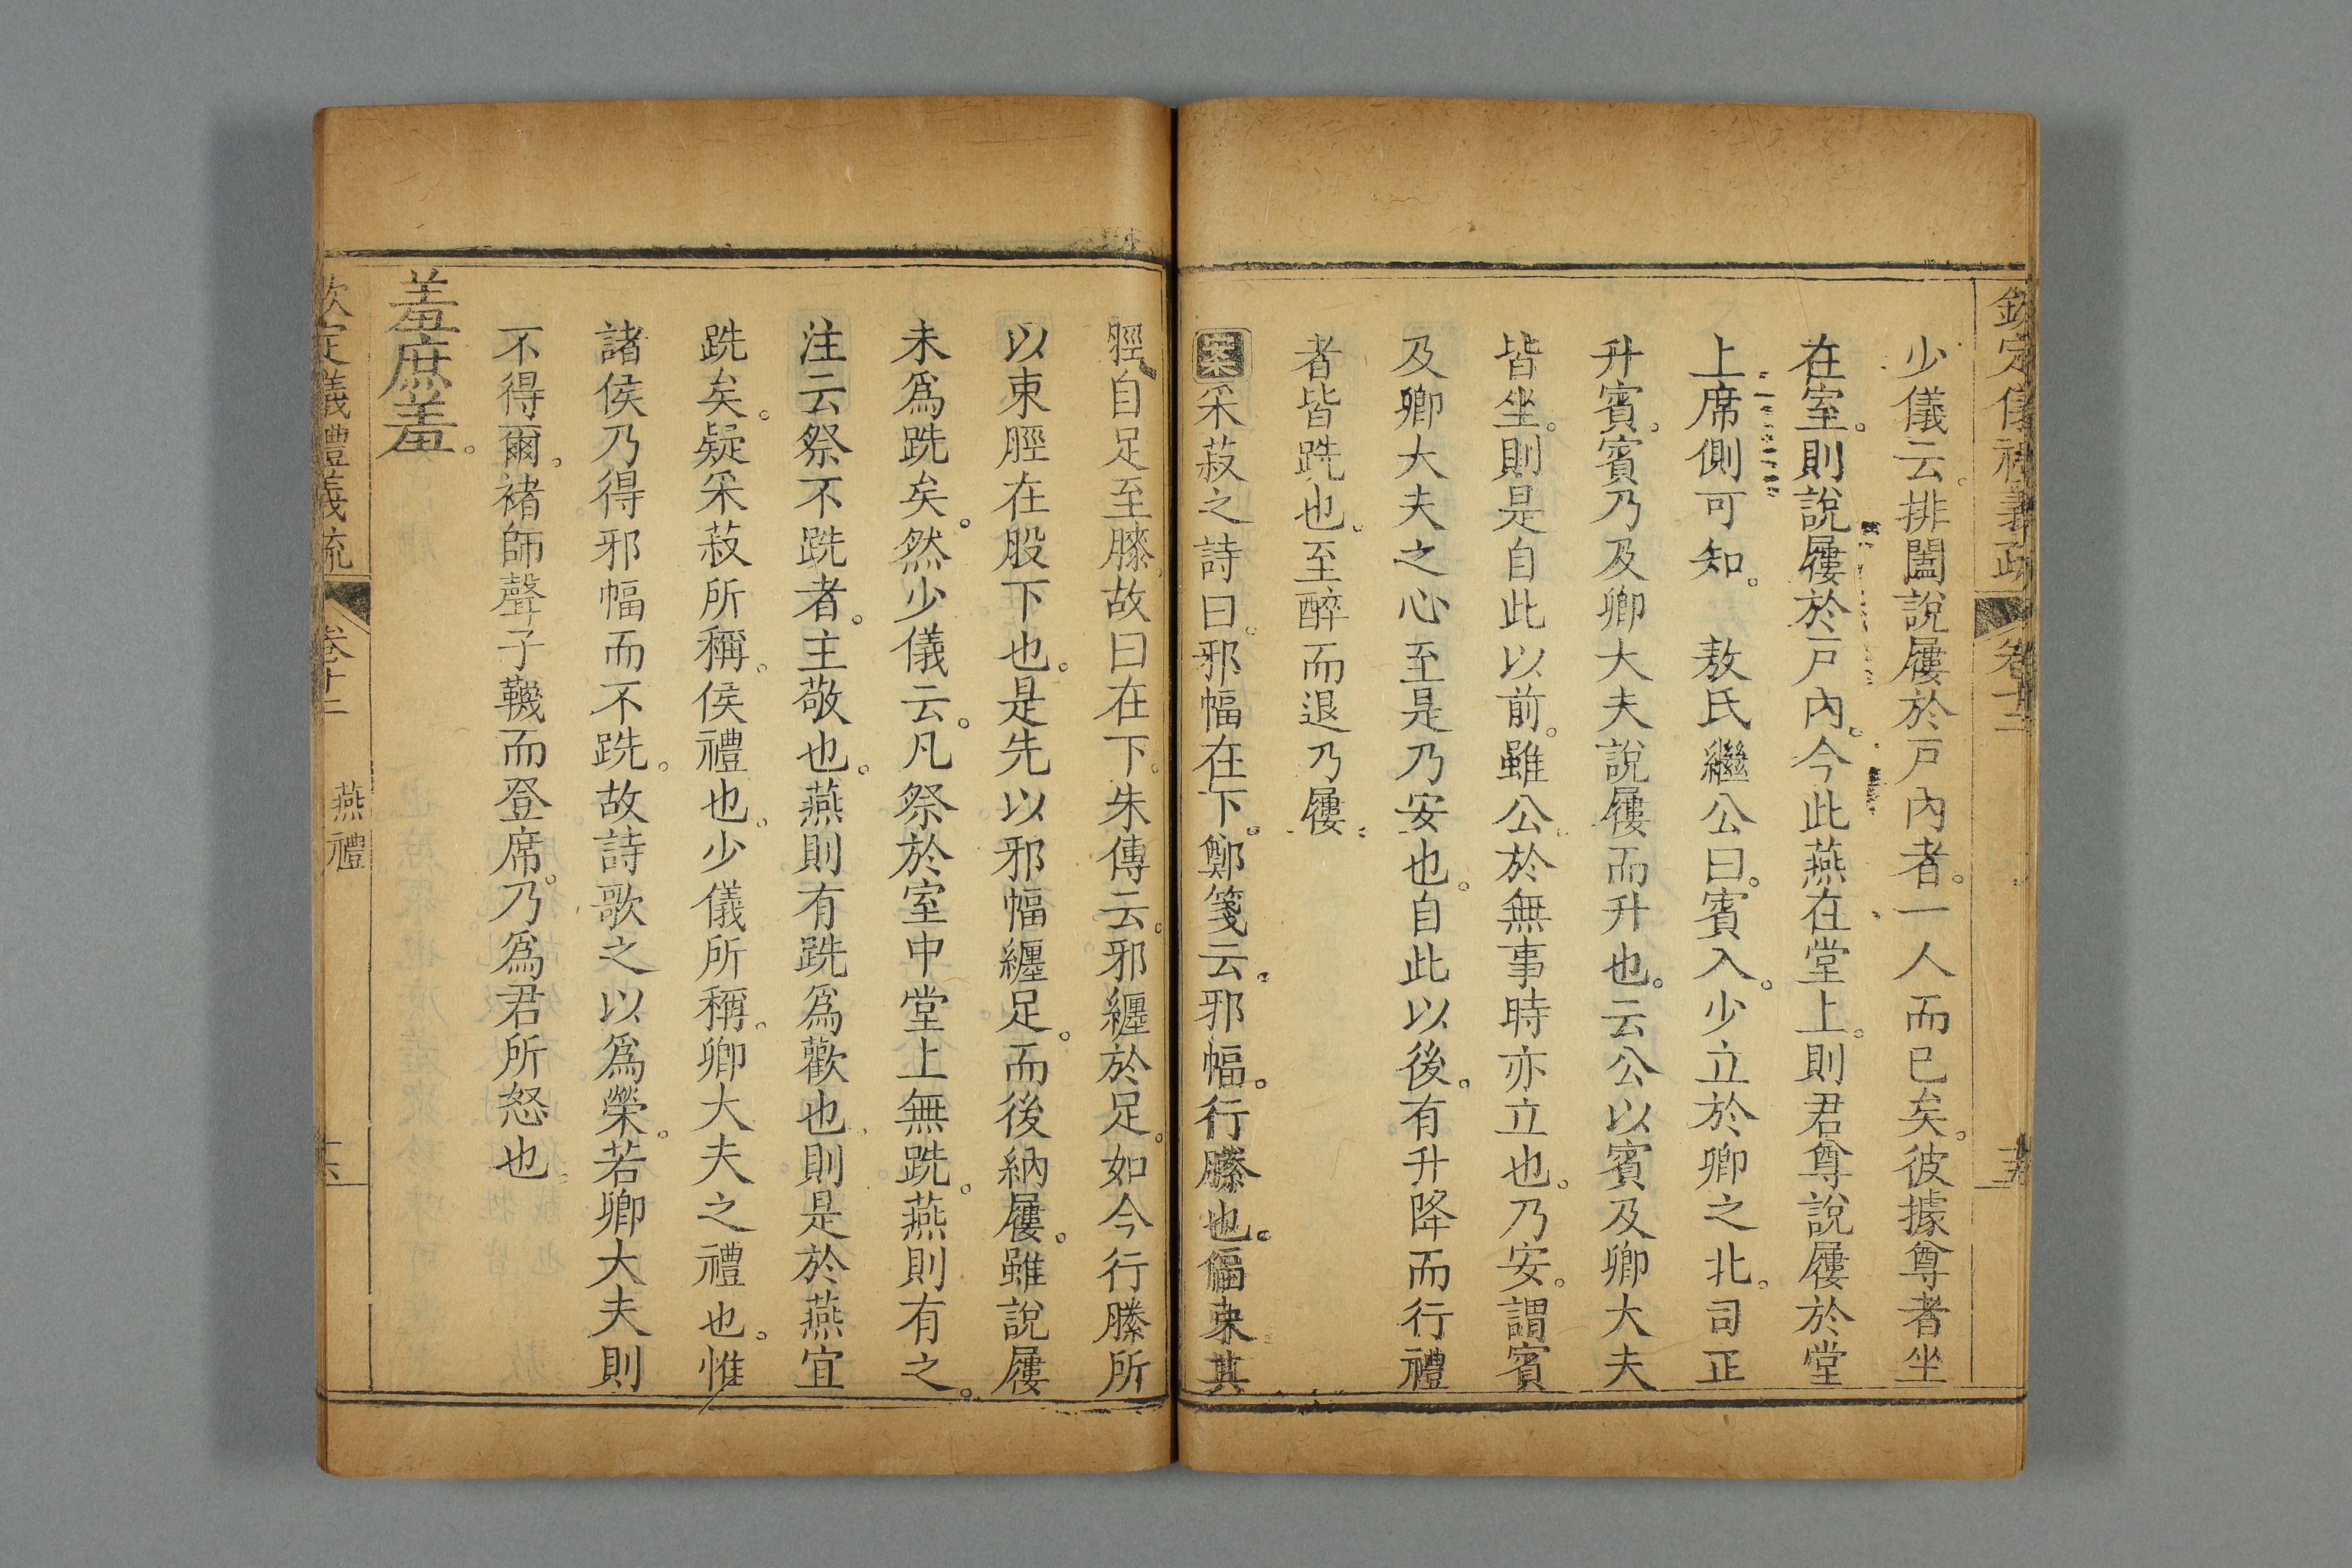 欽定儀禮義疏 卷十二
少儀云。排闔說屨於戶內者。一人而已矣。彼據尊者坐
在室。則說屨於戶內。今此燕在堂上。則君尊說屨於堂
上席側可知。 敖氏繼公曰。賓入。少立於卿之北。司正
升賓。賓乃及卿大夫說屨而升也。云公以賓及卿大夫
皆坐。則是自此以前。雖公於無事時亦立也。乃安。謂賓
及卿大夫之心至是乃安也。自此以後。有升降而行禮
者皆跣也。至醉而退乃屨。
案采菽之詩曰。邪幅在下。鄭箋云。邪幅。行縢也。偪束其
脛自足至膝。故曰在下。朱傳云。邪纏於足。如今行縢所
以束脛在股下也。是先以邪幅纏足。而後納屨。雖說屨
未爲跣矣。然少儀云。凡祭於室中堂上無跣。燕則有之。
注云祭不跣者。主敬也。燕則有跣爲歡也。則是於燕宜
跣矣。疑采菽所稱。侯禮也。少儀所稱。卿大夫之禮也。惟
諸侯乃得邪幅而不跣。故詩歌之以爲榮。若卿大夫則
不得爾。褚師聲子韤而登席。乃爲君所怒也。
羞庶羞。
欽定儀禮義疏 卷十二 燕禮